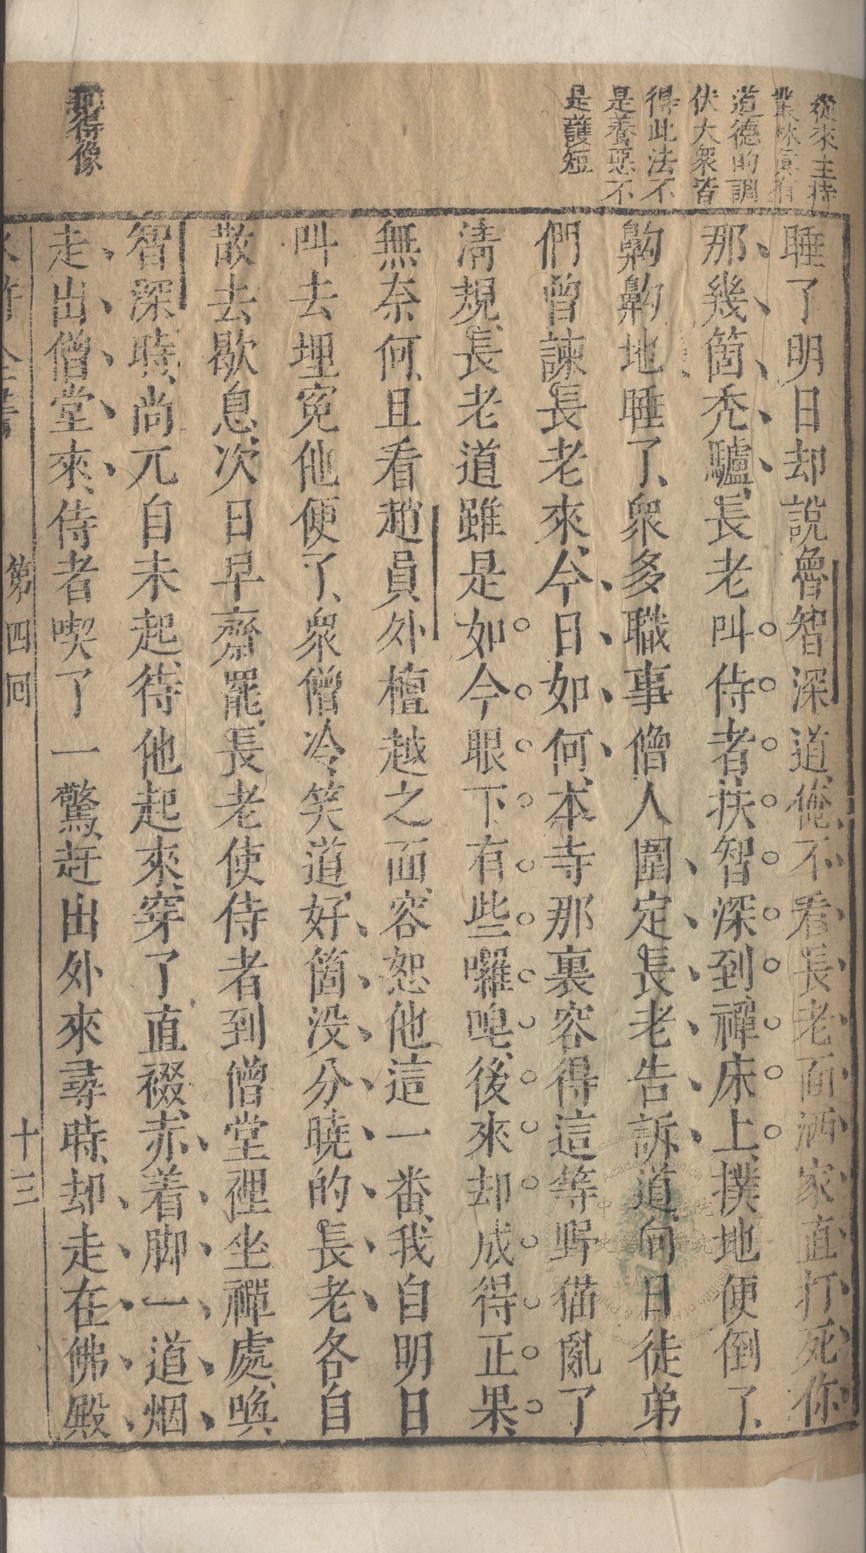 從來主持
叢林須有
道德的調
伏大衆皆
得此法不
是養惡不
是護短
睡了明日却說魯智深道俺不看長老面洒家直打死你
那幾箇禿驢長老叫侍者扶智深到禪床上撲地便倒了
齁齁地睡了衆多職事僧人圍定長老告訴道向日徒弟
們曾諫長老來今日如何本寺那裏容得這等野猫亂了
清規長老道雖是如今眼下有些囉唣後來却成得正果
無奈何且看趙員外檀越之面容恕他這一番我自明日
叫去埋冤他便了衆僧冷笑道好箇没分曉的長老各自
散去歇息次日早齋罷長老使侍者到僧堂裡坐禪處喚
智深時尚兀自未起待他起來穿了直裰赤着脚一道烟
走出僧堂來侍者喫了一驚赶出外來尋時却走在佛殿
形得像
水滸全書 第四回 十三